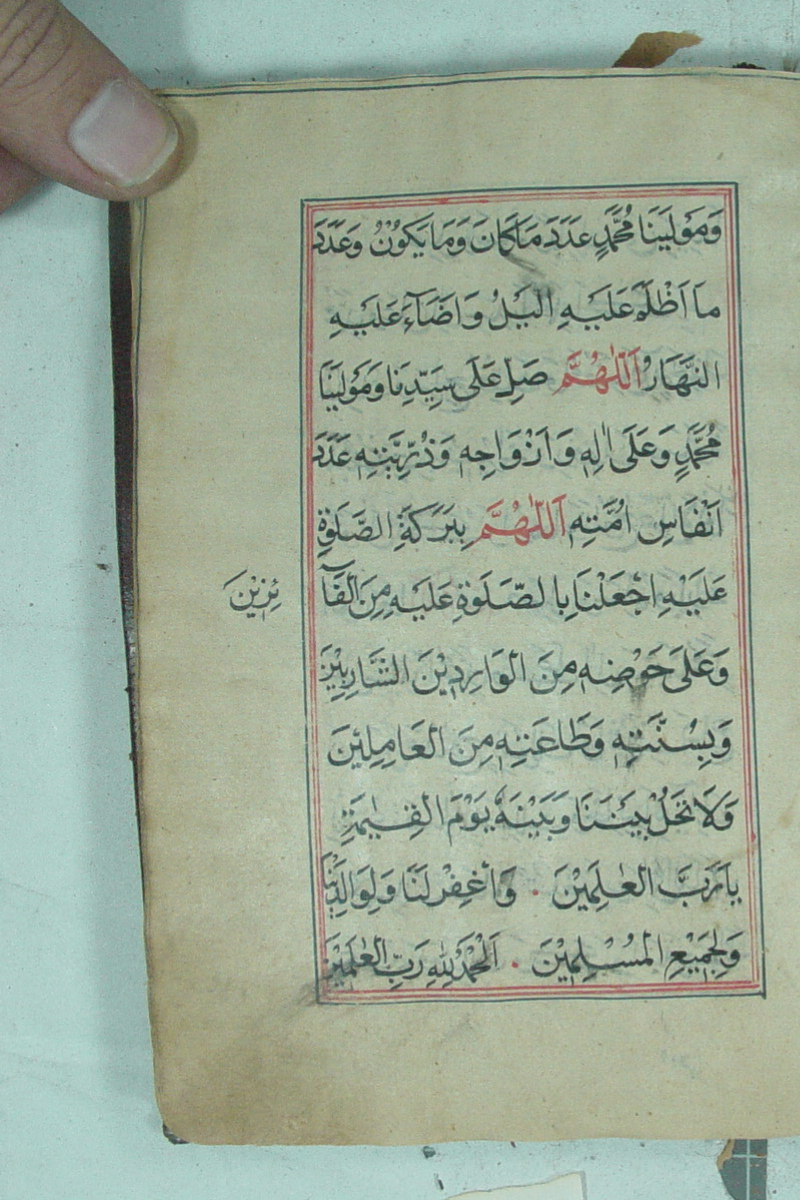 وَمَوْلَينَا مُحَمَّدٍ عَدَدَ مَا كَانَ وَمَا يَكُونُ وَعَدَدَ
مَا اَظْلَمَ عَلَيْهِ اليَلُ وَاَضَاءَ عَلَيْهِ
النَهَارُ اَللّٰهُمَّ صَلِ عَلَى سَيِّدِنَا وَمَوْلَينَا
مُحَمَّدٍ وَعَلَى اٰلِهِ وَاَزْوَاجِهِ وَذُرِّيَّتِهِ عَدَدَ
اَنْفَاسِ اُمَّتِهِ اَللّٰهُمَّ بِبَرَكَةِ الصَّلَوةِ
عَلَيْهِ اجْعَلْنَا بِالصَّلَوةِ عَلَيْهِ مِنَ الْفَآ
ئِزِيْنَ
وَعَلَى حَوْضِهِ مِنَ الْوَارِدِيْنَ الشَّارِبِيْنَ
وَبِسُنَّتِهِ وَطَاعَتِهِ مِنَ الْعَامِلِيْنَ
وَلَا تَحَلْ بَيْنَنَا وَبَيْنَهُ يَوْمَ الْقِيٰمَةِ
يَارَبَّ الْعٰلَمِيْنَ . وَاْغْفِرْ لَنَا وَلِوَالِدَيْنَا
وَلِجَمِيْعِ الْمُسْلِمِيْنَ . اَلْحَمْدُ لِلّٰهِ رَبِّ الْعٰلَمِيْنَ